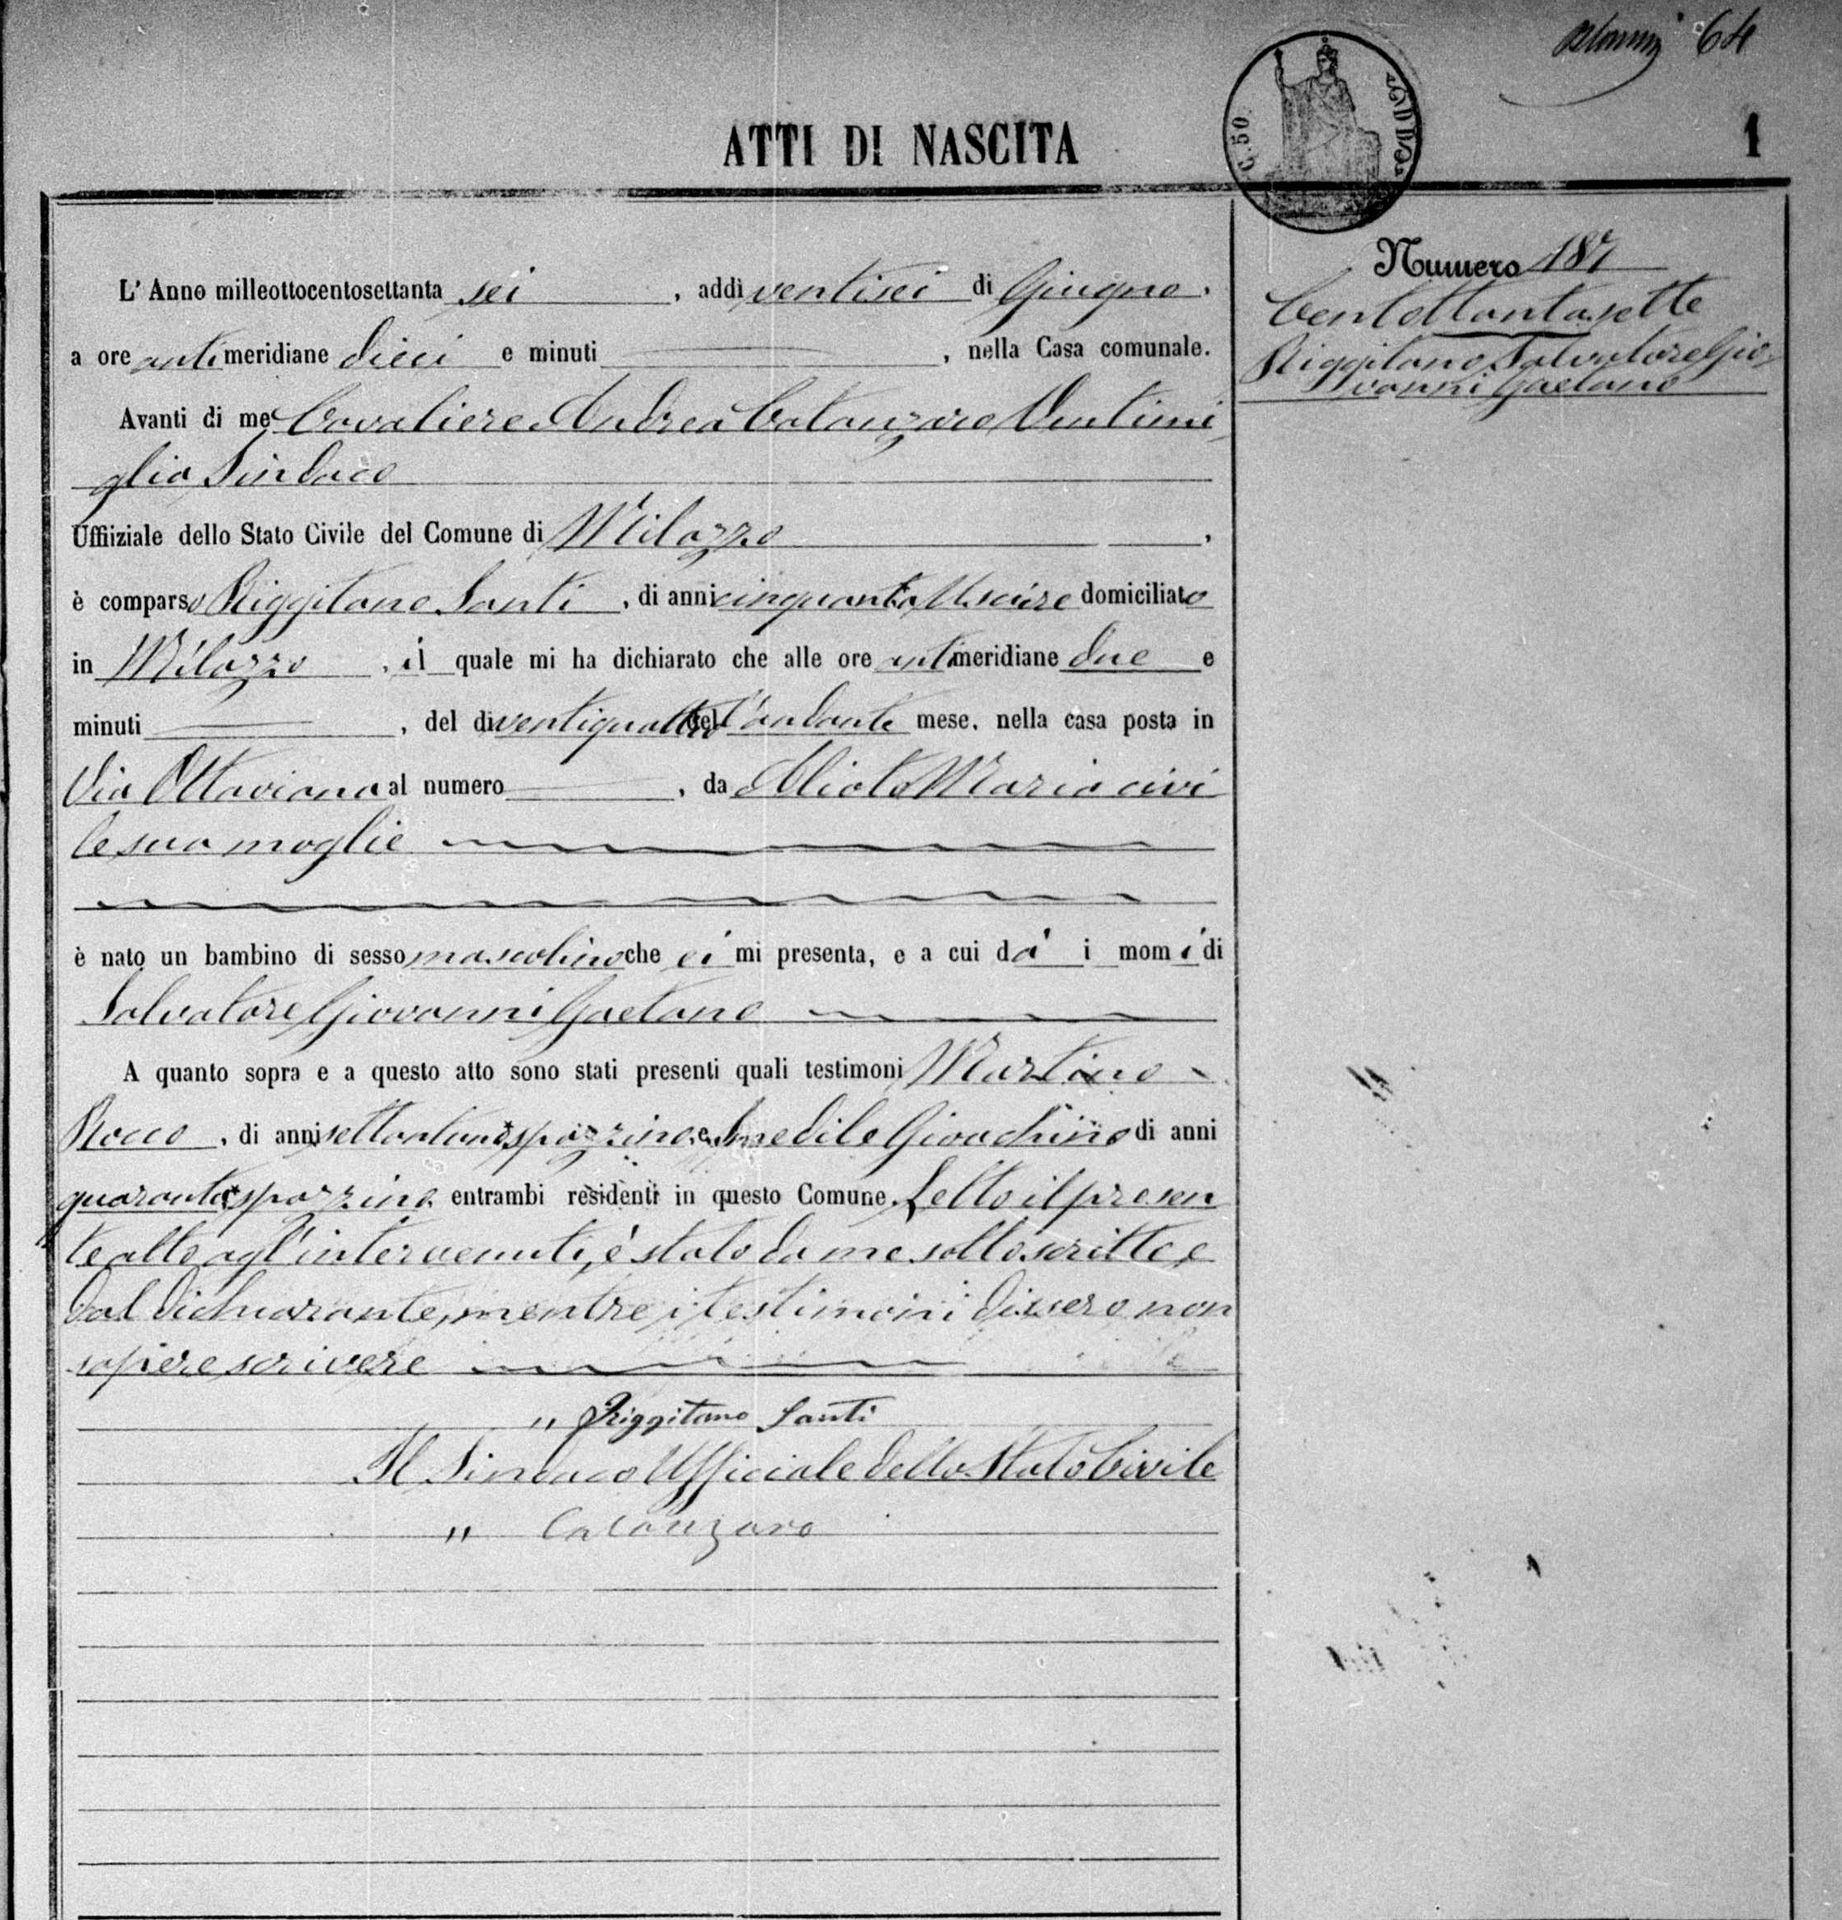 64
ATTI DI NASCITA
C. 50.
1
Numero 187
Centottantasette
Riggitano Salvatore Gio-
vanni Gaetano
L' Anno milleottocentosettanta sei , addì ventisei di Giugno ,
a ore antimeridiane dieci e minuti , nella Casa comunale.
Avanti di me Cavaliere Andrea Catanzaro Ventimi
glia Sindaco
Uffiiziale dello Stato Civile del Comune di Milazzo ,
è comparso Riggitano Santi , di anni cinquanta Usciere domiciliato
in Milazzo , il quale mi ha dichiarato che alle ore antimeridiane due e
minuti , del dì ventiquattro dell'andante mese, nella casa posta in
Via Ottaviana al numero , da Alioto Maria civi
le sua moglie
è nato un bambino di sesso mascolino che ei mi presenta, e a cui dà i momi di
Salvatore Giovanni Gaetano
A quanto sopra e a questo atto sono stati presenti quali testimoni Martino
Rocco , di anni settantuno spazzino, e Giovachino di anni
quaranta spazzino entrambi residenti in questo Comune. Letto il presen
te atto agl'intervenuti, è stato da me sottoscritto e
dal dichiarante, mentre i testimoni dissero non
sapere scrivere
" Riggitano Santi
Il Sindaco Ufficiale dello Stato Civile
" Catanzaro